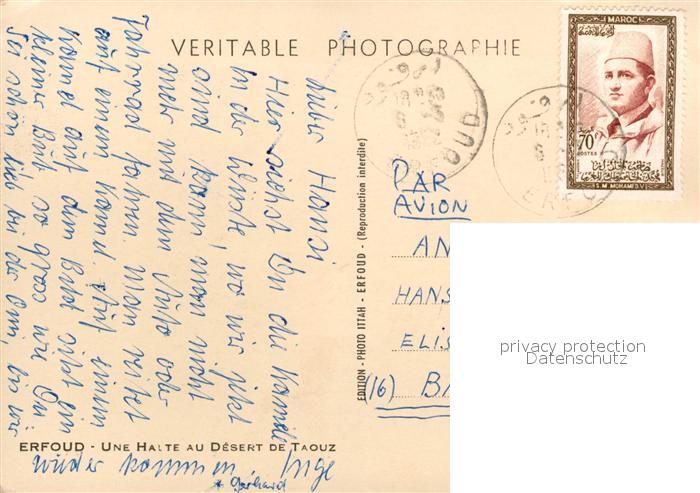 VERITABLE PHOTOGRAPHIE
MAROC
70F
POSTES
S.M. MOHAMED V
ERFOUD
PAR
AVION
AN
HANS
ELIS
(16) BA
privacy protection
Datenschutz
EDITION - PHOTO ITTAH - ERFOUD - (Reproduction interdite)
Lieber Hansi
Hier siehst Du die Kamele
in der Wüste, wo wir jetzt
sind. Kann man nicht
mehr mit dem Auto oder
Fahrrad fahren, man reitet
auf einem Kamel. Auf einem
Kamel auf dem Bild sitzt ein
kleiner Bub, so gross wie Du.
Sei schön lieb bei der Omi, bis wir
ERFOUD - UNE HALTE AU DÉSERT DE TAOUZ
wieder kommen, Inge
+ Gerhard